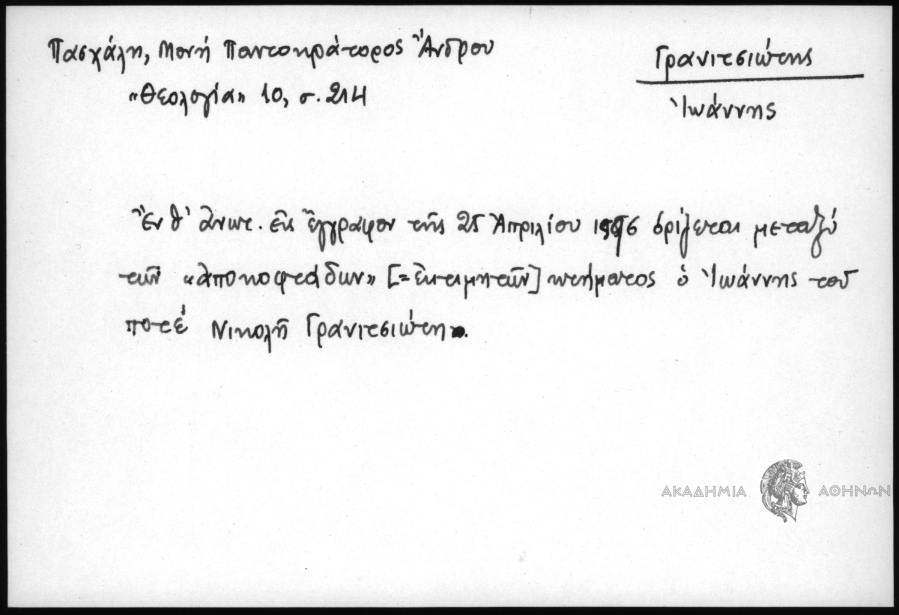 Πασχάλη, Μονή Παντοκράτορος Ἄνδρου
«Θεολογία» 10, σ. 214
Γρανιτσιώτης
Ἰωάννης
Ἐν θ' ἀνωτ. εἰς ἔγγραφον τῆς 25 Ἀπριλίου ὁρίζεται μεταξύ
τῶν «ἀποκοφτάδων» [=ἐκτιμητῶν] κτήματος ὁ Ἰωάννης τοῦ
ποτέ Νικολῆ Γρανιτσιώτη.
ΑΚΑΔΗΜΙΑ ΑΘΗΝΩΝ